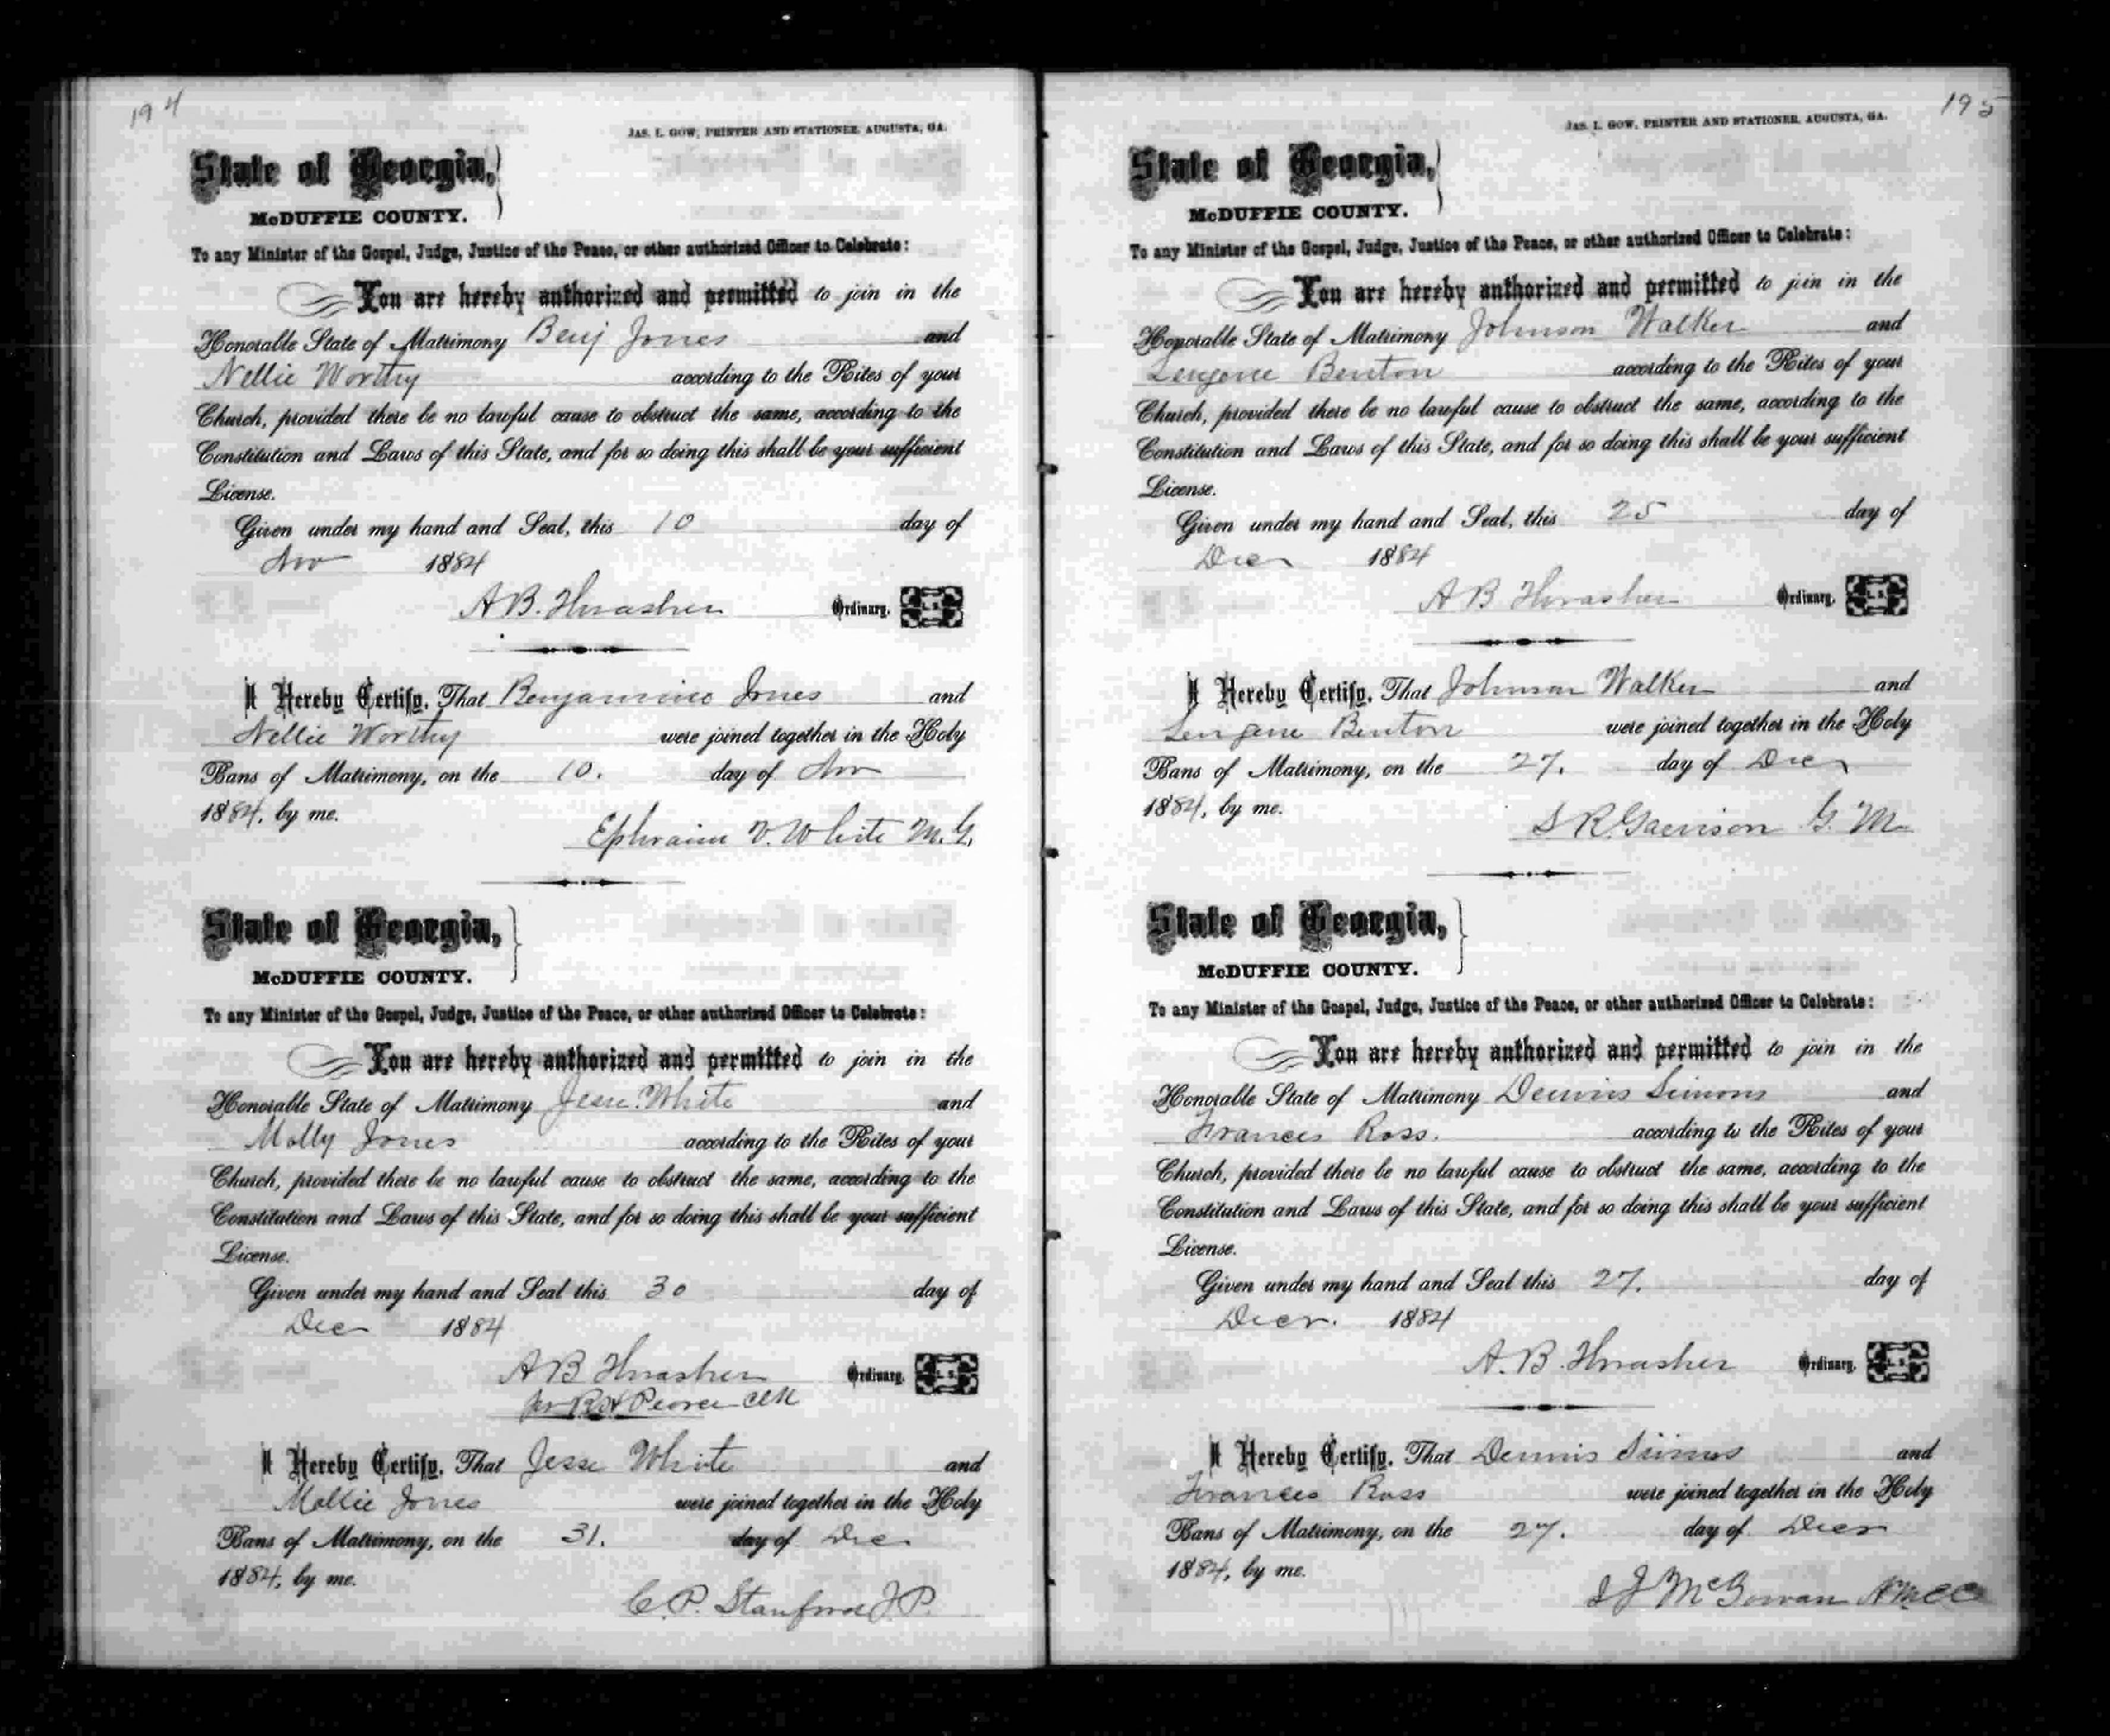 194
JAS. L. GOW, PRINTER AND STATIONER, AUGUSTA, GA.
State of Georgia,
McDUFFIE COUNTY.
To any Minister of the Gospel, Judge, Justice of the Peace, or other authorized Officer to Celebrate:
You are hereby authorized and permitted to join in the
Honorable State of Matrimony Benj Jones and
Nellie Worthy according to the Rites of your
Church, provided there be no lawful cause to obstruct the same, according to the
Constitution and Laws of this State, and for so doing this shall be your sufficient
License.
Given under my hand and Seal, this 10 day of
Nov 1884
A.B. Thrasher Ordinary. L.S.
I Hereby Certify, That Benjamine Jones and
Nellie Worthy were joined together in the Holy
Bans of Matrimony, on the 10. day of Nov
1884, by me.
Ephraim V. White M.G.
State of Georgia,
McDUFFIE COUNTY.
To any Minister of the Gospel, Judge, Justice of the Peace, or other authorized Officer to Celebrate:
You are hereby authorized and permitted to join in the
Honorable State of Matrimony Jesse White and
Molly Jones according to the Rites of your
Church, provided there be no lawful cause to obstruct the same, according to the
Constitution and Laws of this State, and for so doing this shall be your sufficient
License.
Given under my hand and Seal this 30 day of
Dec 1884
A B Thrasher Ordinary. L.S.
per R H Pearce Clk
I Hereby Certify, That Jesse White and
Mollie Jones were joined together in the Holy
Bans of Matrimony, on the 31. day of Dec
1884, by me.
C.P. Stanford J.P.
195
JAS. L. GOW, PRINTER AND STATIONER, AUGUSTA, GA.
State of Georgia,
McDUFFIE COUNTY.
To any Minister of the Gospel, Judge, Justice of the Peace, or other authorized Officer to Celebrate:
You are hereby authorized and permitted to join in the
Honorable State of Matrimony Johnson Walker and
Benton according to the Rites of your
Church, provided there be no lawful cause to obstruct the same, according to the
Constitution and Laws of this State, and for so doing this shall be your sufficient
License.
Given under my hand and Seal, this 25 day of
Decr 1884
A B Thrasher Ordinary. L.S.
I Hereby Certify, That Johnson Walker and
Benton were joined together in the Holy
Bans of Matrimony, on the 27. day of Decr
1884, by me.
S R. Garrison G. M.
State of Georgia,
McDUFFIE COUNTY.
To any Minister of the Gospel, Judge, Justice of the Peace, or other authorized Officer to Celebrate:
You are hereby authorized and permitted to join in the
Honorable State of Matrimony Dennis Simons and
Frances Ross. according to the Rites of your
Church, provided there be no lawful cause to obstruct the same, according to the
Constitution and Laws of this State, and for so doing this shall be your sufficient
License.
Given under my hand and Seal this 27. day of
Decr. 1884
A. B. Thrasher Ordinary. L.S.
I Hereby Certify, That Dennis Simms and
Frances Ross were joined together in the Holy
Bans of Matrimony, on the 27. day of Decr
1884, by me.
McGowan